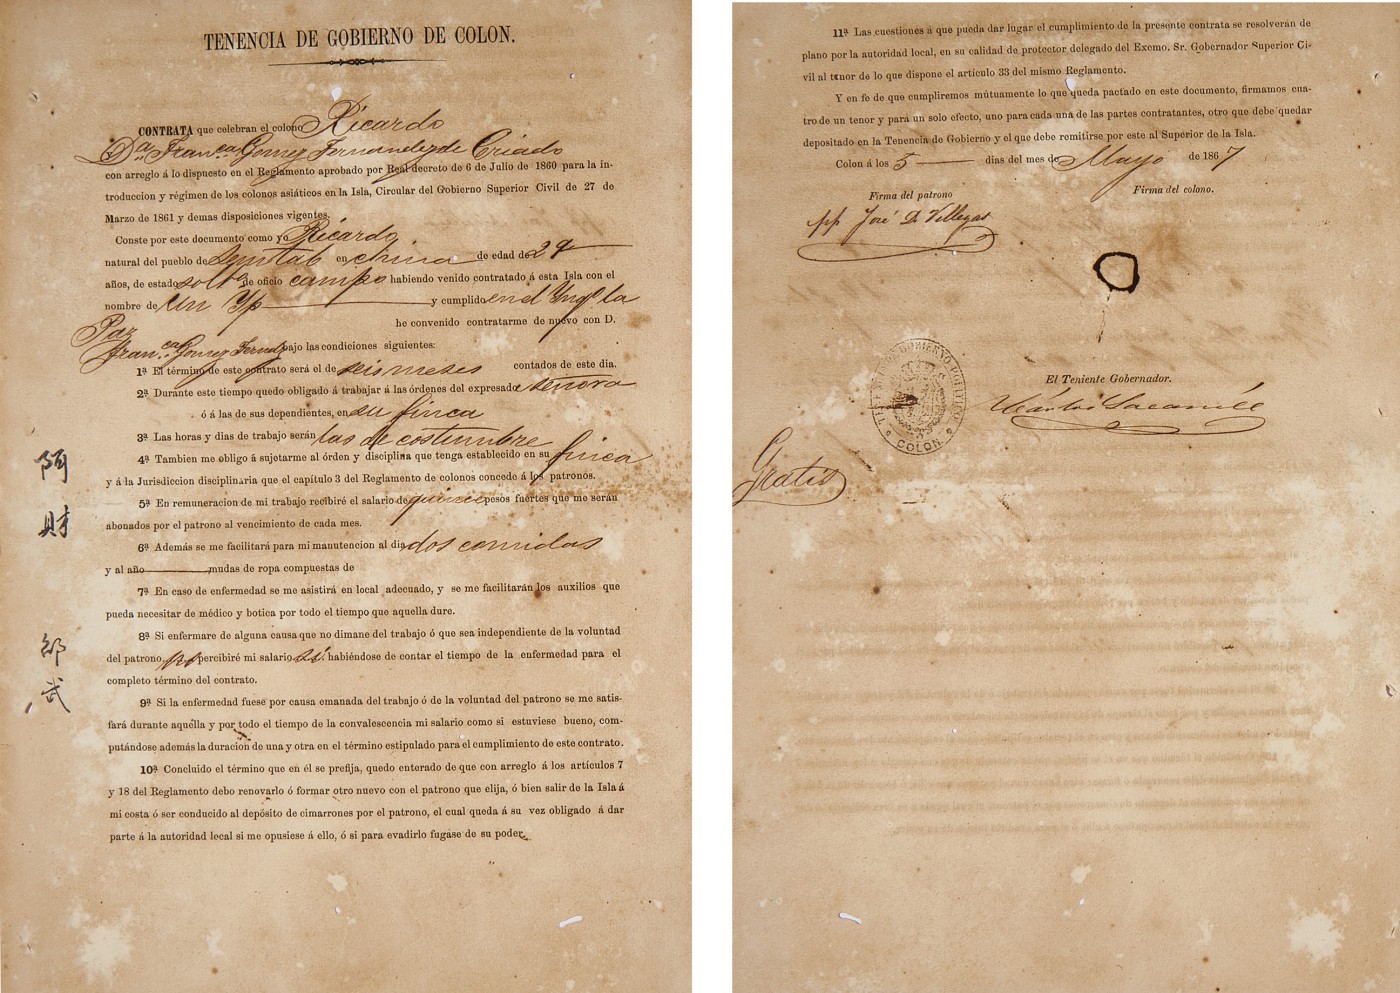 TENENCIA DE GOBIERNO DE COLON.
CONTRATA que celebran el colono Ricardo
Da. Franca. Gomez Fernandez de Criado
con arreglo á lo dispuesto en el Reglamento aprobado por Real decreto de 6 de Julio de 1860 para la in-
troduccion y régimen de los colonos asiáticos en la Isla, Circular del Gobierno Superior Civil de 27 de
Marzo de 1861 y demas disposiciones vigentes.
Conste por este documento como yo Ricardo
natural del pueblo de en china de edad de 29
años, de estado solto. de oficio campo habiendo venido contratado á esta Isla con el
nombre de y cumplido en el Yngo. la
Paz he convenido contratarme de nuevo con D.
Franca. Gomez Fernz. bajo las condiciones siguientes:
1ª El término de este contrato será el de seis meses contados de este dia.
2ª Durante este tiempo quedo obligado á trabajar á las órdenes del expresado señora
ó á las de sus dependientes, en su finca
3ª Las horas y dias de trabajo serán las de costumbre
4ª Tambien me obligo á sujetarme al órden y disciplina que tenga establecido en su finca
y á la Jurisdiccion disciplinaria que el capítulo 3 del Reglamento de colonos concede á los patronos.
5ª En remuneracion de mi trabajo recibiré el salario de quince pesos fuertes que me serán
abonados por el patrono al vencimiento de cada mes.
6ª Además se me facilitará para mi manutencion al dia dos comidas
y al año mudas de ropa compuestas de
7ª En caso de enfermedad se me asistirá en local adecuado, y se me facilitarán los auxilios que
pueda necesitar de médico y botica por todo el tiempo que aquella dure.
8ª Si enfermare de alguna causa que no dimane del trabajo ó que sea independiente de la voluntad
del patrono, no percibiré mi salario si habiéndose de contar el tiempo de la enfermedad para el
completo término del contrato.
9ª Si la enfermedad fuese por causa emanada del trabajo ó de la voluntad del patrono se me satis-
fará durante aquella y por todo el tiempo de la convalescencia mi salario como si estuviese bueno, com-
putándose además la duracion de una y otra en el término estipulado para el cumplimiento de este contrato.
10ª Concluido el término que en él se prefija, quedo enterado de que con arreglo á los artículos 7
y 18 del Reglamento debo renovarlo ó formar otro nuevo con el patrono que elija, ó bien salir de la Isla á
mi costa ó ser conducido al depósito de cimarrones por el patrono, el cual queda á su vez obligado á dar
parte á la autoridad local si me opusiese á ello, ó si para evadirlo fugáse de su poder.
阿
財
邵
武
11ª Las cuestiones á que pueda dar lugar el cumplimiento de la presente contrata se resolverán de
plano por la autoridad local, en su calidad de protector delegado del Exemo. Sr. Gobernador Superior Ci-
vil al tenor de lo que dispone el artículo 33 del mismo Reglamento.
Y en fe de que cumpliremos mútuamente lo que queda pactado en este documento, firmamos cua-
tro de un tenor y para un solo efecto, uno para cada una de las partes contratantes, otro que debe quedar
depositado en la Tenencia de Gobierno y el que debe remitirse por este al Superior de la Isla.
Colon á los 5 dias del mes de Mayo de 1867
Firma del patrono
Firma del colono.
pp José D. Villegas
El Teniente Gobernador.
COLON
Gratis